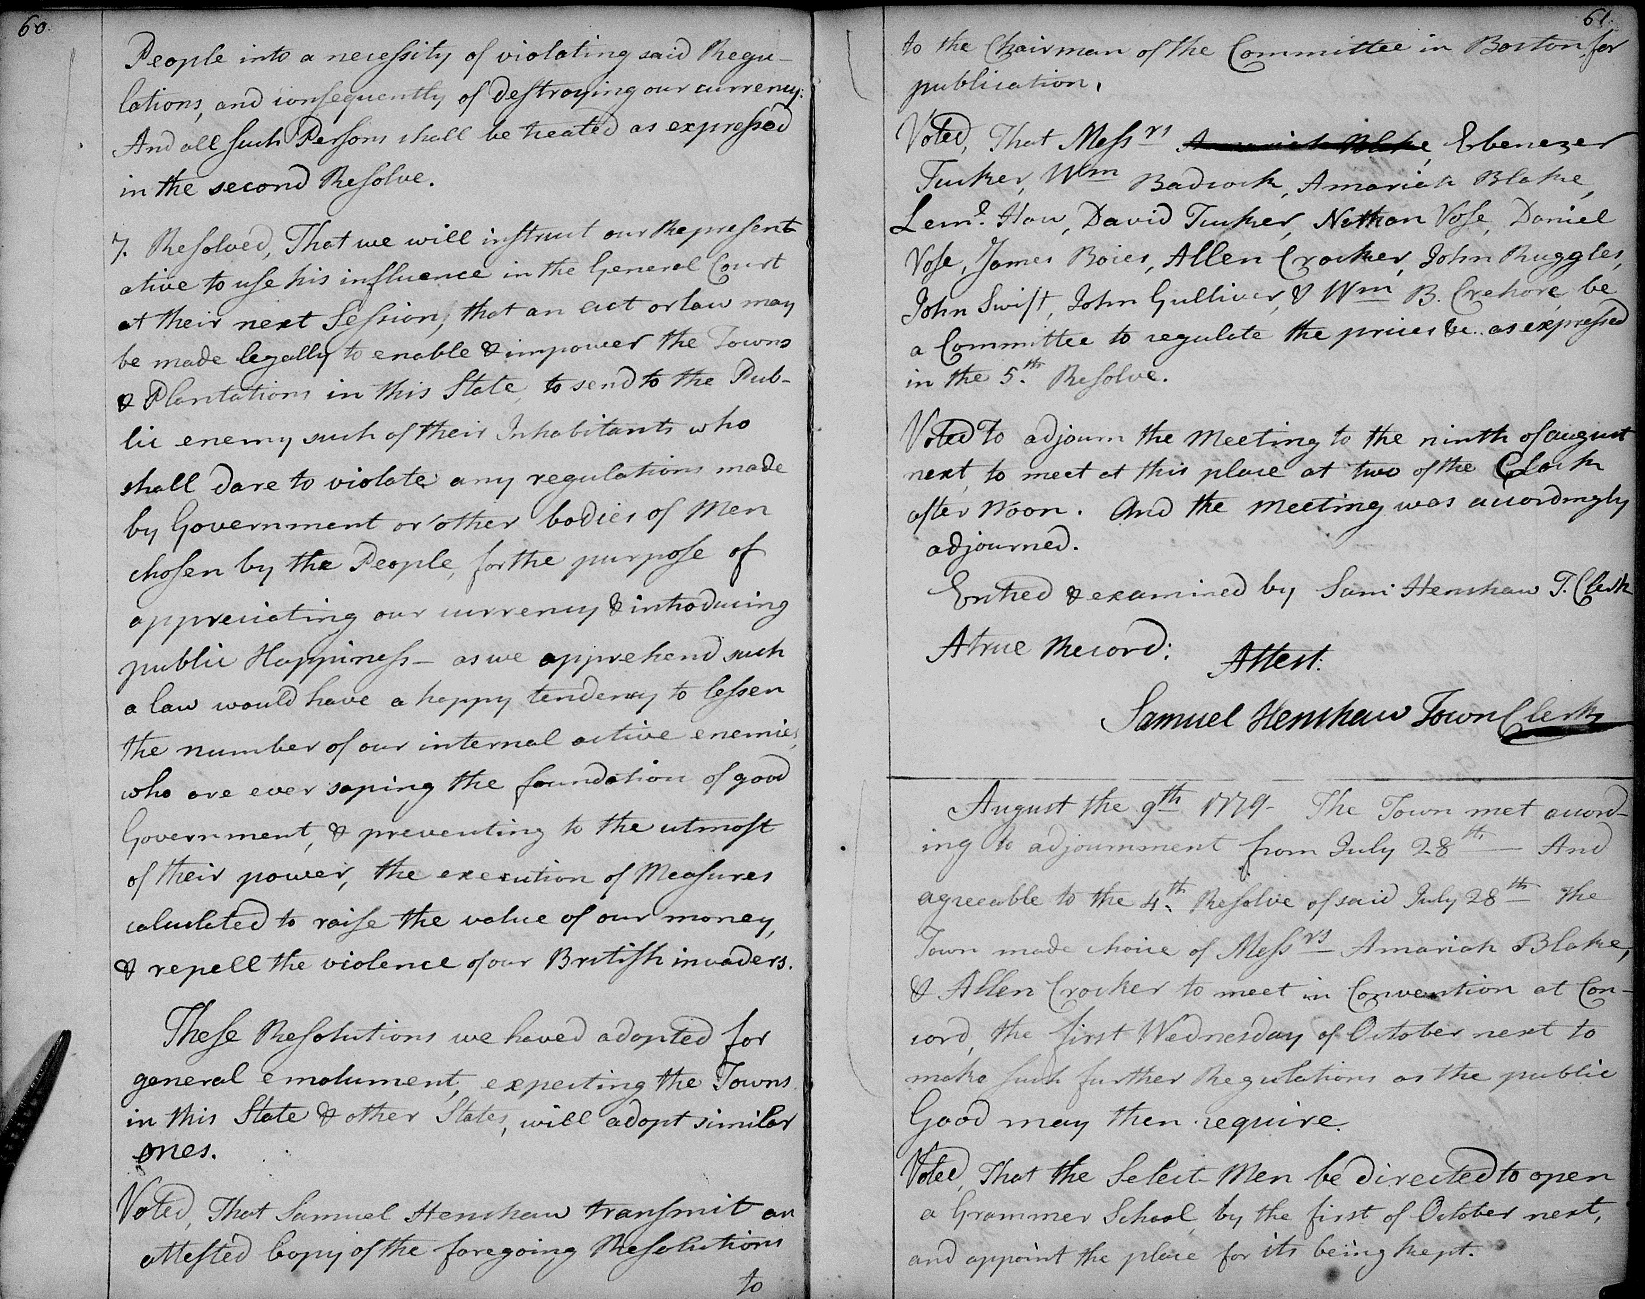 60.
People into a necessity of violating said Regu-
lations, and consequently of destroying our currency:
And all such Persons shall be treated as expressed
in the second Resolve.
7. Resolved, That we will instruct our Represent
ative to use his influence in the General Court
at their next Session, that an act or law may
be made legally to enable & impower the Towns
& Plantations in this State, to send to the Pub-
lic enemy such of their Inhabitants who
shall dare to violate any regulations made
by Government or other bodies of Men
chosen by the People, for the purpose of
appreciating our currency & introducing
public Happiness - as we apprehend such
a law would have a happy tendency to lessen
the number of our internal active enemies,
who are ever saping the foundation of good
Government, & preventing to the utmost
of their power, the execution of Measures
calculated to raise the value of our money,
& repell the violence of our British invaders.
These Resolutions we haved adopted for
general emolument, expecting the Towns
in this State & other States, will adopt similar
ones.
Voted, That Samuel Henshaw transmit an
attested Copy of the foregoing Resolutions
to
61.
to the Chairman of the Committee in Boston for
publication.
Voted, That Messrs Amariah Blake, Ebenezer
Tucker, Wm Badcock, Amariah Blake,
Lemł. How, David Tucker, Nathan Vose, Daniel
Vose, James Boies, Allen Crocker, John Ruggles,
John Swift, John Gulliver, & Wm B. Crehore, be
a Committee to regulate the prices &c. as expressed
in the 5.th Resolve.
Voted to adjourn the Meeting to the ninth of august
next, to meet at this place at two of the Clock
after Noon. And the meeting was accordingly
adjourned.
Entred & examined by Sam Henshaw T. Clerk
A true Record: Attest:
Samuel Henshaw Town Clerk
August the 9th 1779- The Town met accord-
ing to adjournment from July 28th - And
agreeable to the 4.th Resolve of said July 28th the
Town made choice of Messrs Amariah Blake,
& Allen Crocker to meet in Convention at Con-
cord, the first Wednesday of October next to
make such further Regulations as the public
Good may then require.
Voted, That the Select Men be directed to open
a Grammer School, by the first of October next,
and appoint the place for its being kept.